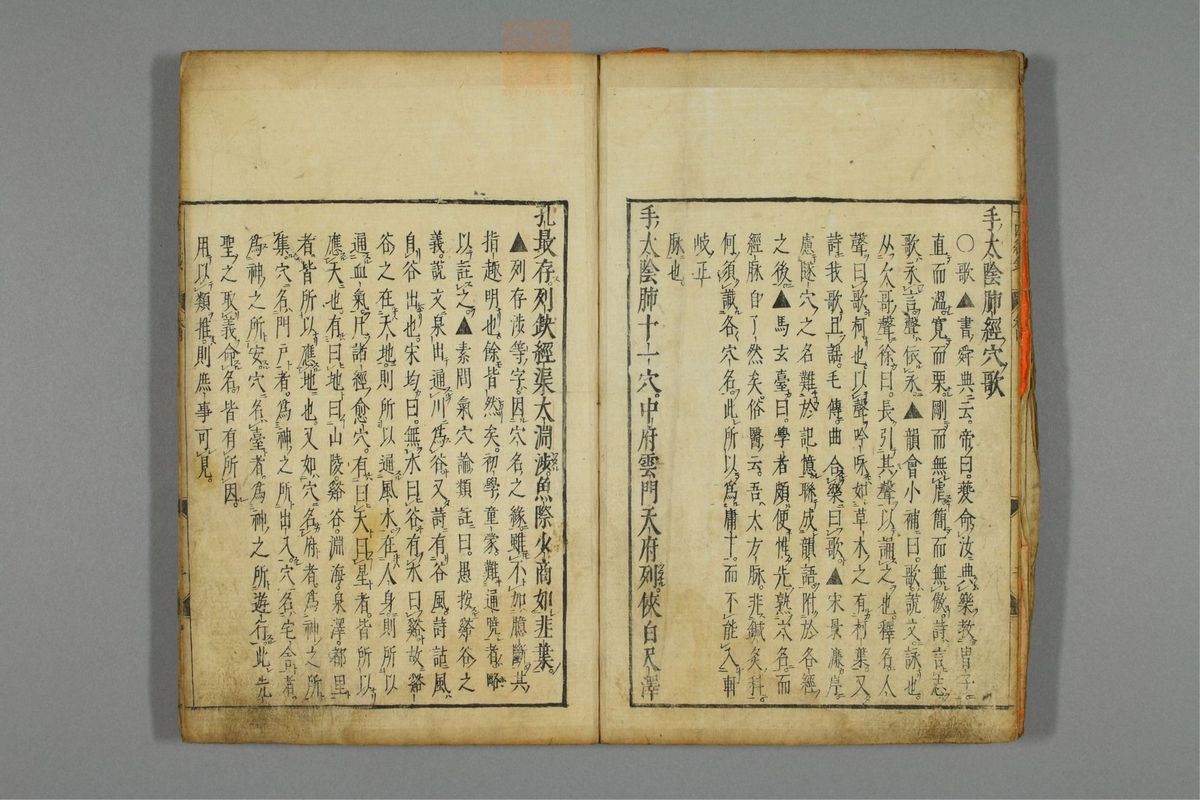 手太陰肺經穴歌
○歌▲書舜典云。帝曰。夔命汝典樂教冑子。
直而溫。寬而栗剛而無虐簡而無傲。詩言志
歌永言。聲依永。▲韻會小補曰。歌說文。詠也
从欠哥聲徐曰。長引其聲以誦之也釋名人
聲曰歌柯也以聲吟咏如草木之有柯葉又
詩我歌且謠。毛傳曲合樂曰歌。▲宋景濂序
慮隧穴之名難於記憶聯成韻語附於各經
之後▲馬玄臺曰。學者頗便性先熟穴名。而
經脉自了然矣。俗醫云。吾太方脉。非鍼灸科。
何須識各穴名。此所以為庸下。而不能入軒
岐正
脉也。
手太陰肺十一穴。中府雲門天府列俠白尺澤
孔最存列欽經渠太淵涉魚際少商如韭葉。
▲列存涉等字。因穴名之緣雖不加臆斷其
指趣明也。餘皆然矣。初學童蒙難通曉者略
以註之▲素問氣穴論類註曰。愚按谿谷之
義。說文泉出通川為谷又詩有谷風。詩詁風
自谷出也。宋均曰。無水曰谷有水曰谿。故谿
谷之在天地。則所以通風水在人身則所以
通血氣。凡諸經愈穴。有曰天曰星者皆所以
應天也。有曰地曰山陵谿谷。淵海泉澤。都里
者皆所以應地也。又如穴名府者為神之所
集穴名門戶者。為神之所出入。穴名宅舍者。
為神之所安。穴名臺者。為神之所遊行。此先
聖之取義命名。皆有所因。
用以類推則庶事可見。